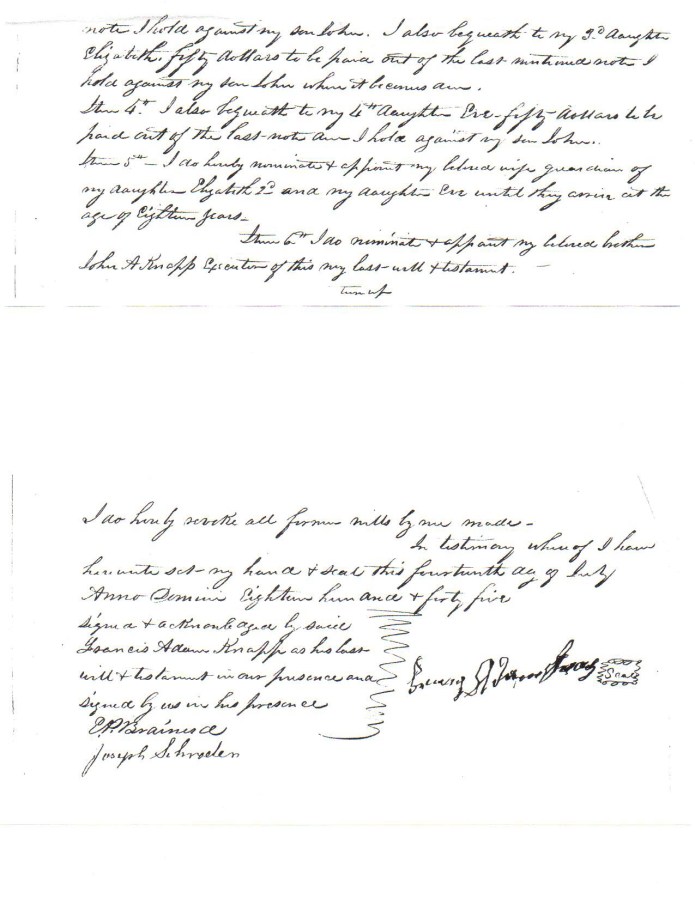 note I hold against my son John. I also bequeath to my 3d daughter
Elizabeth. fifty dollars to be paid out of the last mentioned note I
hold against my son John when it becomes due.
Item 4th. I also bequeath to my 4th daughter Eve fifty dollars to be
paid out of the last note due I hold against my son John.
Item 5th - I do hereby nominate & appoint my beloved wife guardian of
my daughter Elizabeth 2d and my daughter Eve until they arrive at the
age of Eighteen years -
Item 6th I do nominate & appoint my beloved brother
John A Knapp Executor of this my last will & testament. -
turn up
I do hereby revoke all former wills by me made -
In testimony whereof I have
hereunto set my hand & seal this fourteenth day of July
Anno Domini Eighteen hundred & forty five
signed & acknowledged by said
Francis Adam Knapp as his last
will & testament in our presence and
signed by us in his presence
Adam
Seal
E.P. Brainerd
Joseph Schroden